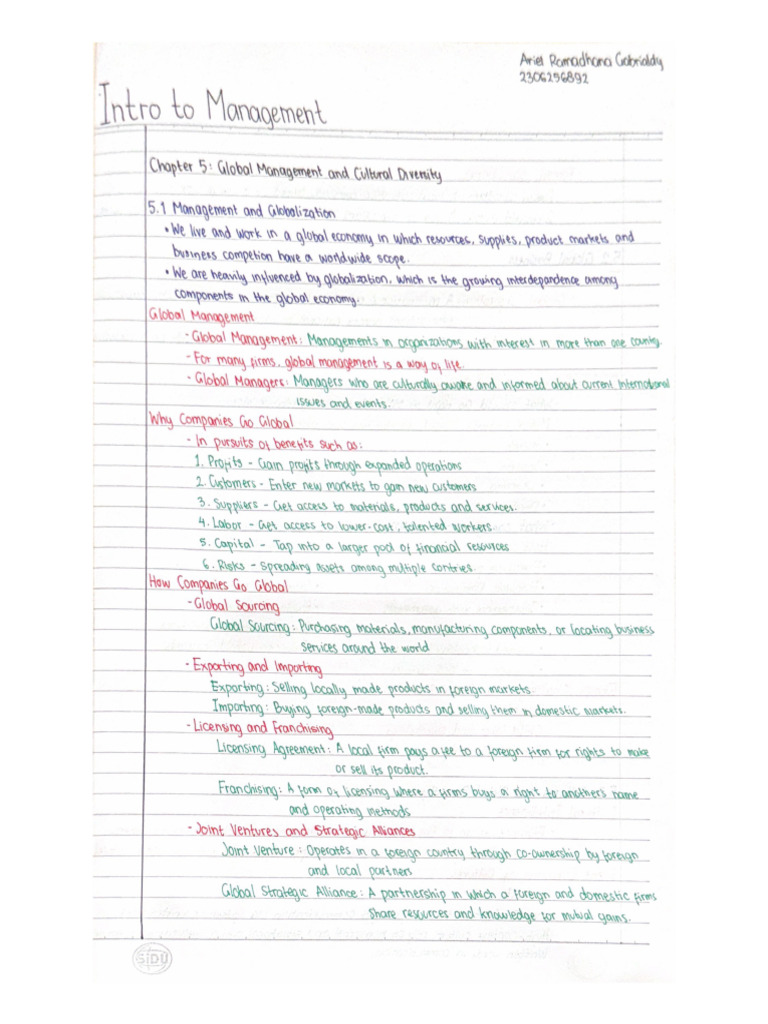 Ariel Ramadhana Gabrialdy
2306256892
Intro to Management
Chapter 5: Global Management and Cultural Diversity
5.1 Management and Globalization
• We live and work in a global economy in which resources, supplies, product markets and
business competion have a worldwide scope.
• We are heavily influenced by globalization, which is the growing interdependence among
components in the global economy.
Global Management
- Global Management: Managements in organizations with interest in more than one country.
- For many firms, global management is a way of life.
- Global Managers: Managers who are culturally awake and informed about current International
issues and events.
Why Companies Go Global
- In pursuits of benefits such as:
1. Profits - Gain profits through expanded operations
2. Customers - Enter new markets to gain new customers
3. Suppliers - Get access to materials, products and services.
4. Labor - Get access to lower-cost, talented workers.
5. Capital - Tap into a larger pool of financial resources
6. Risks - Spreading assets among multiple contries.
How Companies Go Global
- Global Sourcing
Global Sourcing: Purchasing materials, manufacturing components, or locating business
services around the world
- Exporting and Importing
Exporting: Selling locally made products in foreign markets.
Importing: Buying foreign-made products and selling them in domestic markets.
- Licensing and Franchising
Licensing Agreement: A local firm pays a fee to a foreign firm for rights to make
or sell its product.
Franchising: A form of licensing where a firms buys a right to another's name
and operating methods
- Joint Ventures and Strategic Alliances
Joint Venture: Operates in a foreign country through co-ownership by foreign
and local partners
Global Strategic Alliance: A partnership in which a foreign and domestic firms
share resources and knowledge for mutual gains.
SIDU